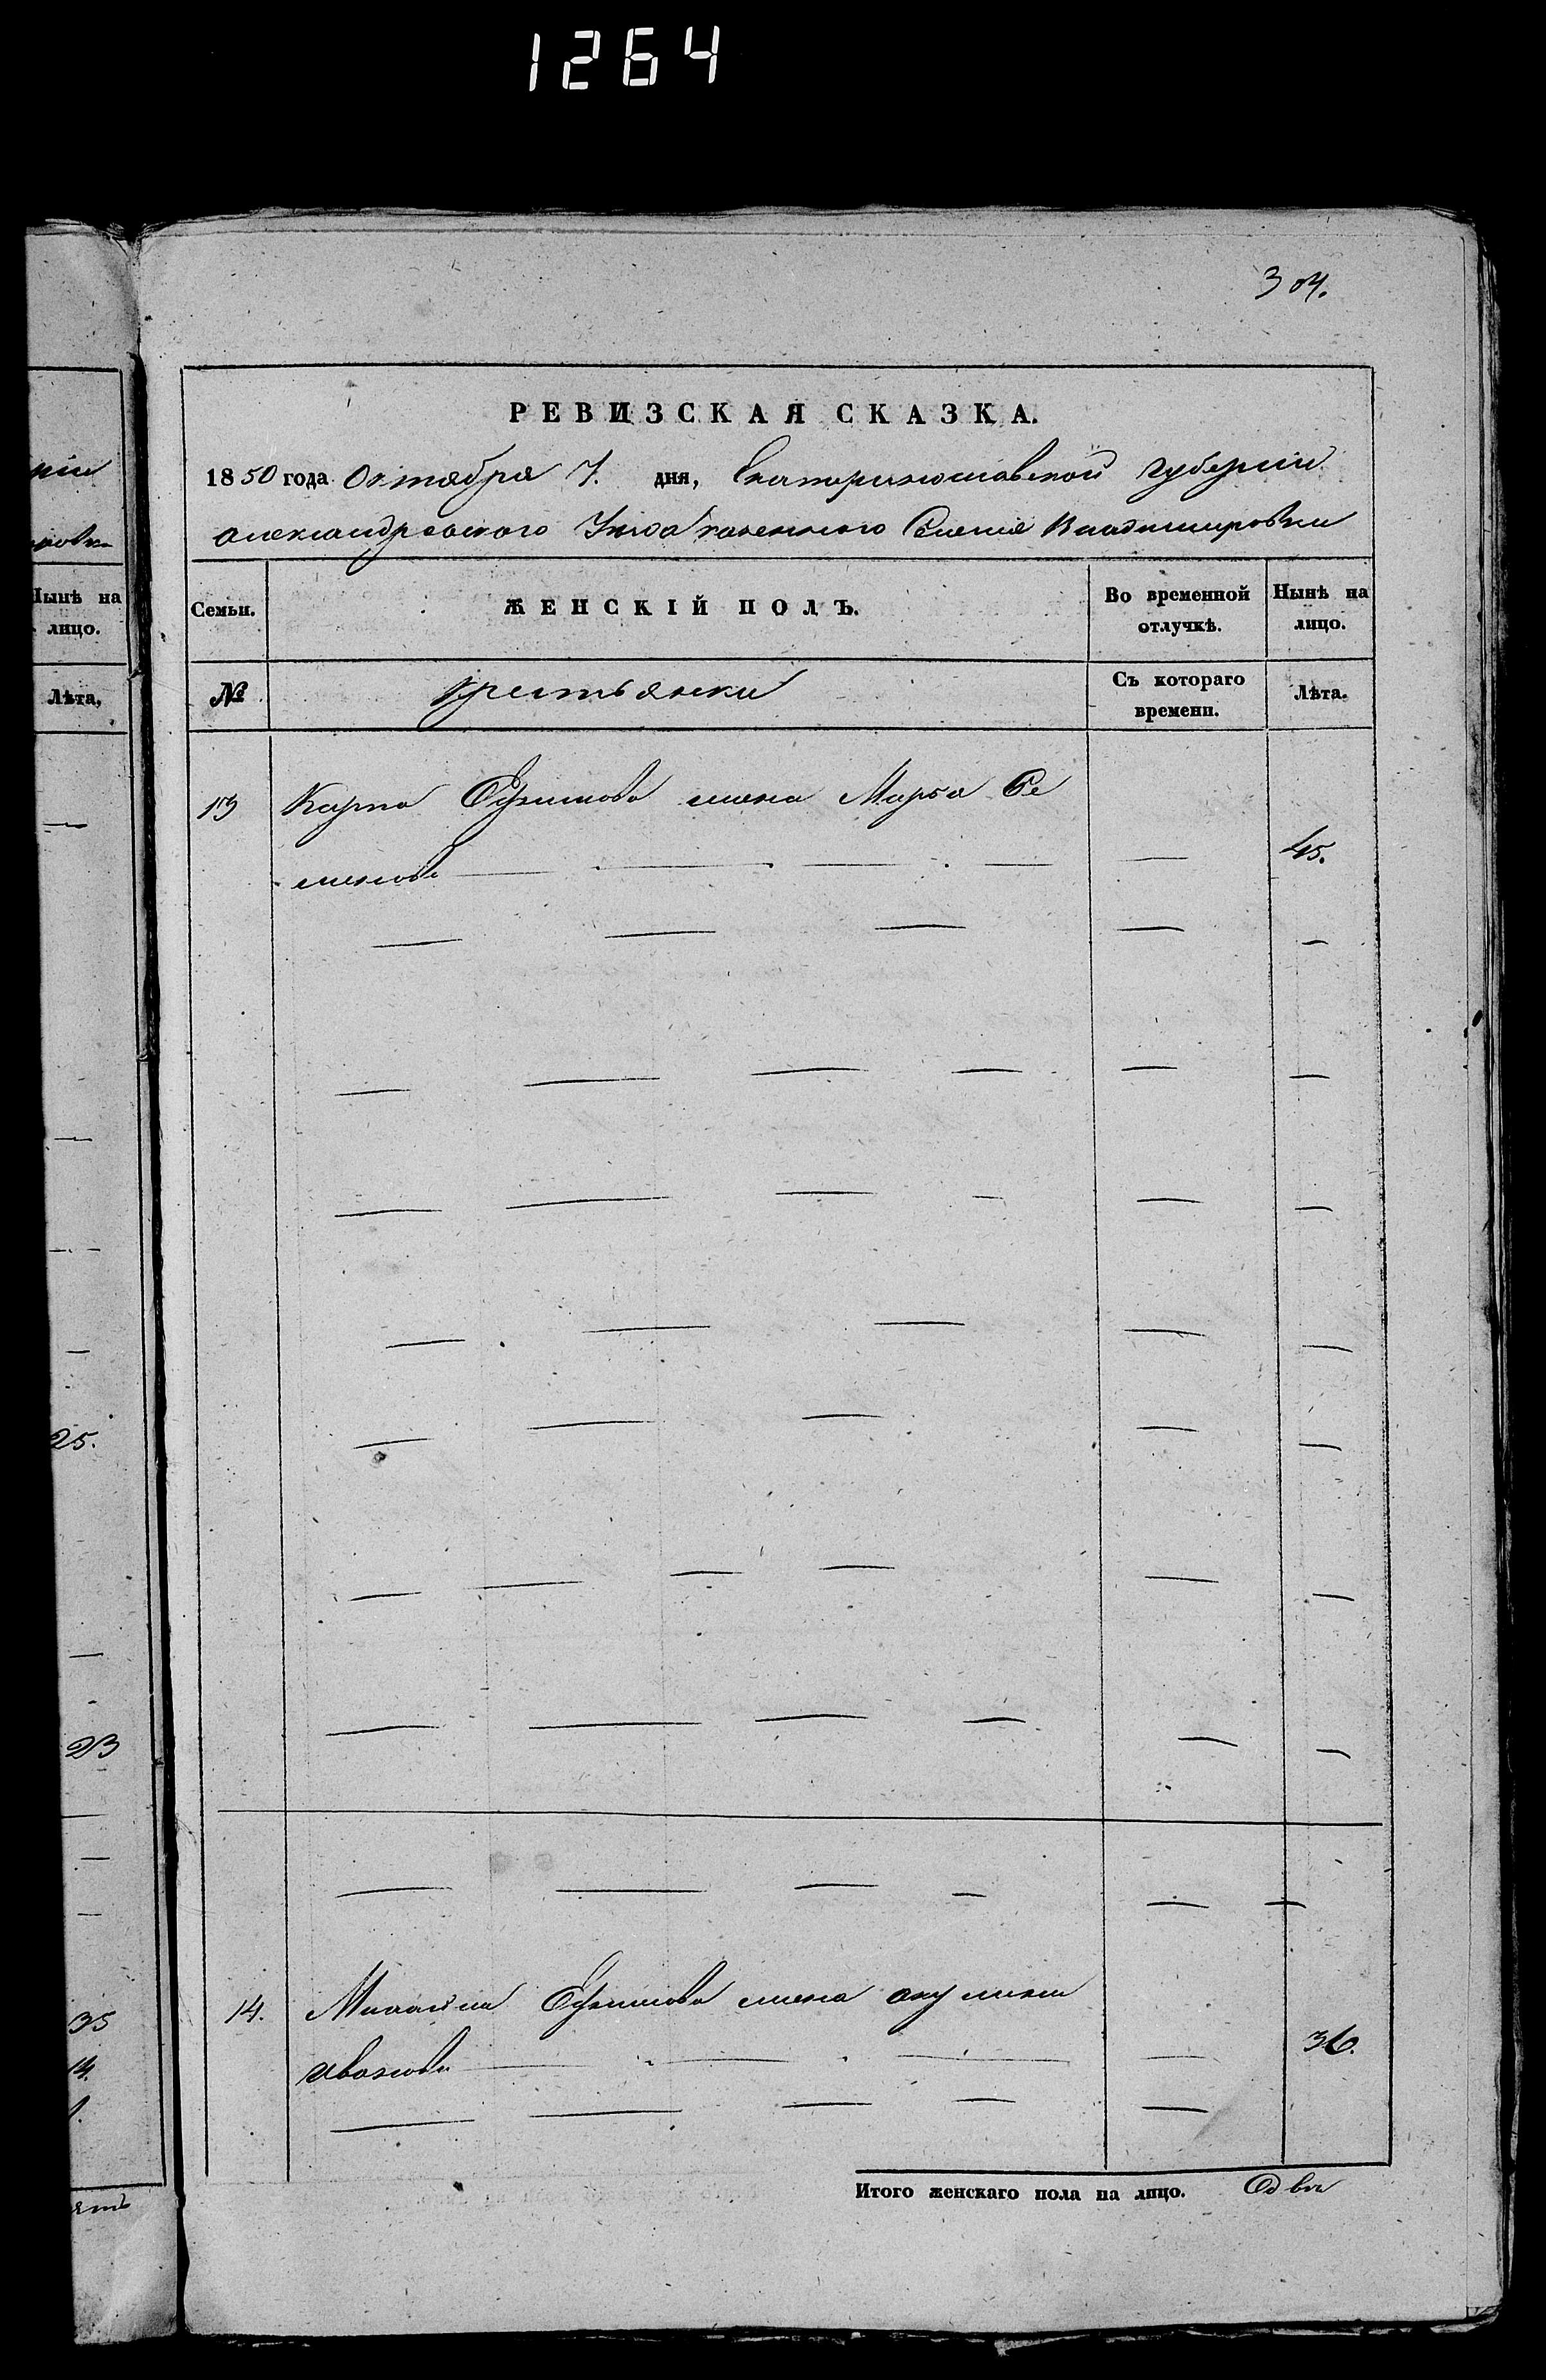 1264
304.
нiи
новка
Нынѣ на
лицо.
Лѣта,
25.
23
35
14.
РЕВИЗСКАЯ СКАЗКА.
1850 года Октября 7. дня, Екатеринославской губернiи
Александровского Уезда казенного Селенiя Владимировки
Семьи.
ЖЕНСКIЙ ПОЛЪ.
Во временной
отлучкѣ.
Нынѣ на
лицо.
№
крестьянки
Съ котораго
времени.
Лѣта.
13 Карпа Ефимова жена Марья Се
менова 45.
14. Михайла Ефимова жена акулина
иванова 36.
Итого женскаго пола на лицо. Две